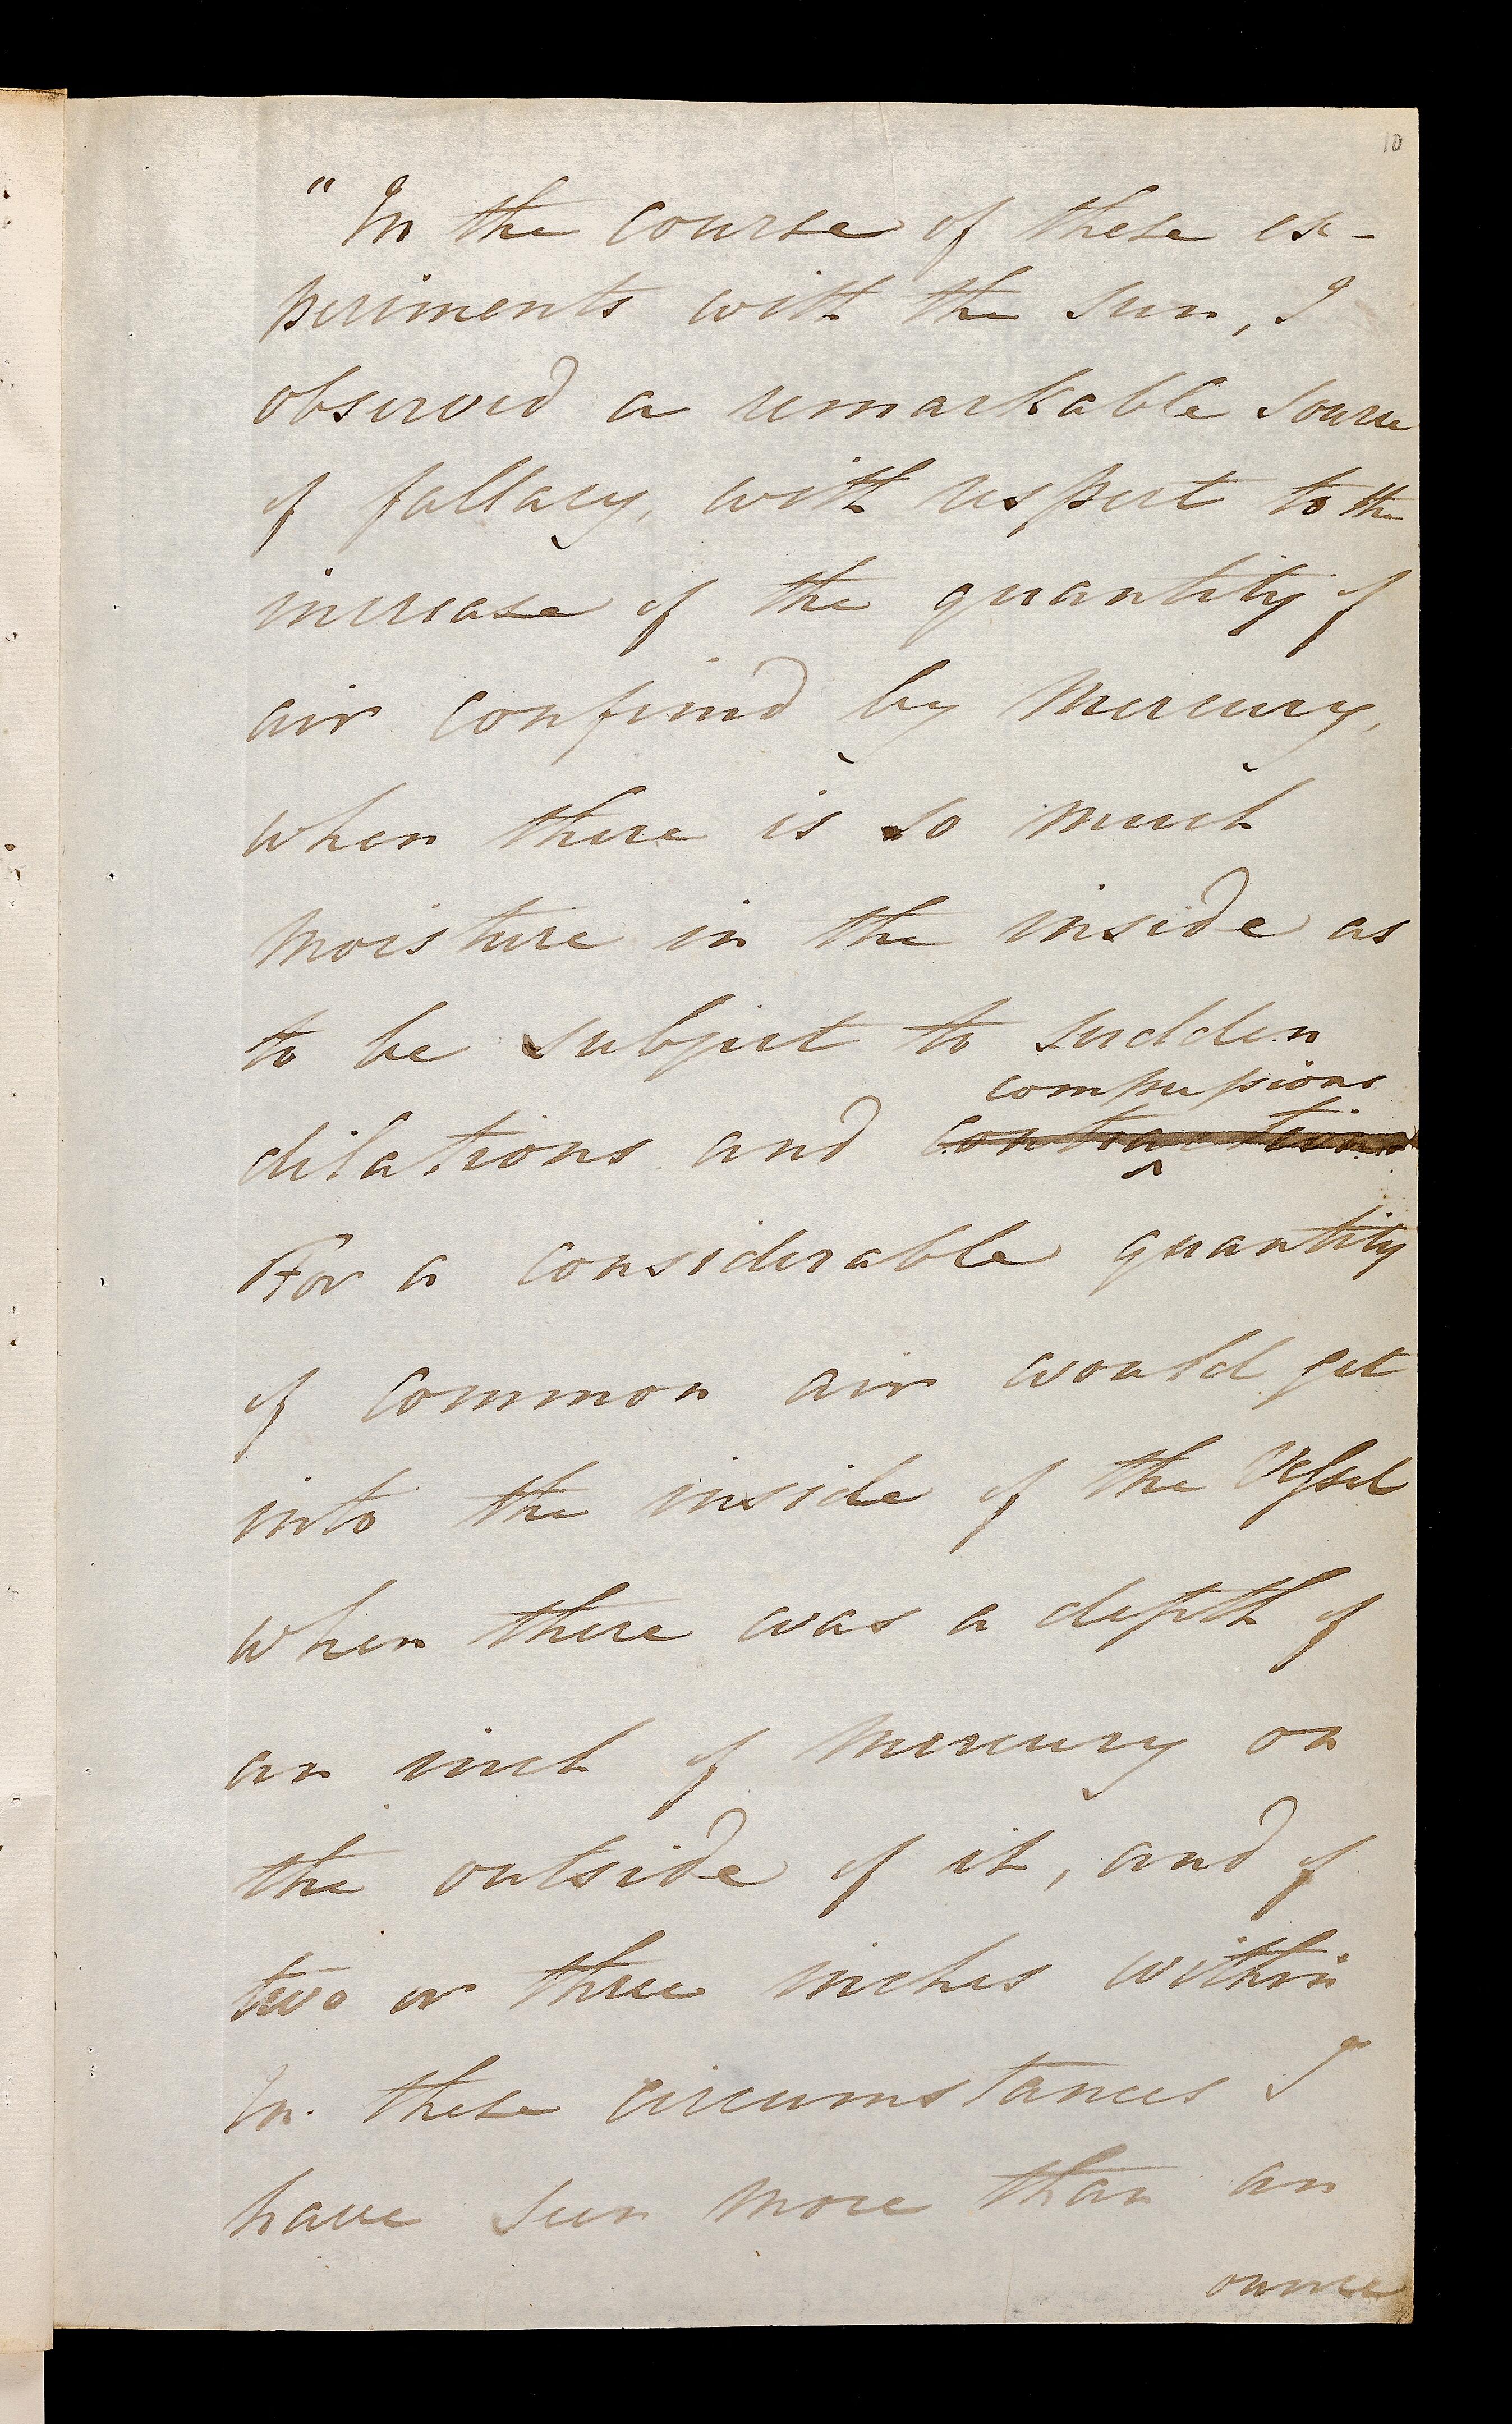 10
" In the course of these ex-
periments with the sun, I
observed a remarkable source
of fallacy, with respect to the
increase of the quantity of
air confined by Mercury,
when there is so much
moisture in the inside as
to be subject to sudden
compressions
dilations and contractions
For a considerable quantity
of common air would get
into the inside of the Vessel
when there was a depth of
an inch of Mercury on
the outside of it, and of
two or three inches within
In these circumstances I
have seen more than an
ounce